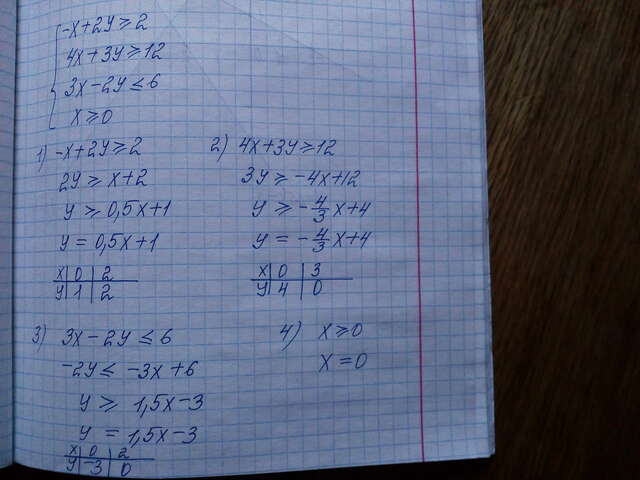 -x+2y≥2
4x+3y≥12
3x-2y≤6
x≥0
1) -x+2y≥2
2y≥x+2
y≥0,5x+1
y=0,5x+1
x|0|2
y|1|2
2) 4x+3y≥12
3y≥-4x+12
y≥-4/3x+4
y=-4/3x+4
x|0|3
y|4|0
3) 3x-2y≤6
-2y≤-3x+6
y≥1,5x-3
y=1,5x-3
x|0|2
y|-3|0
4) x≥0
x=0